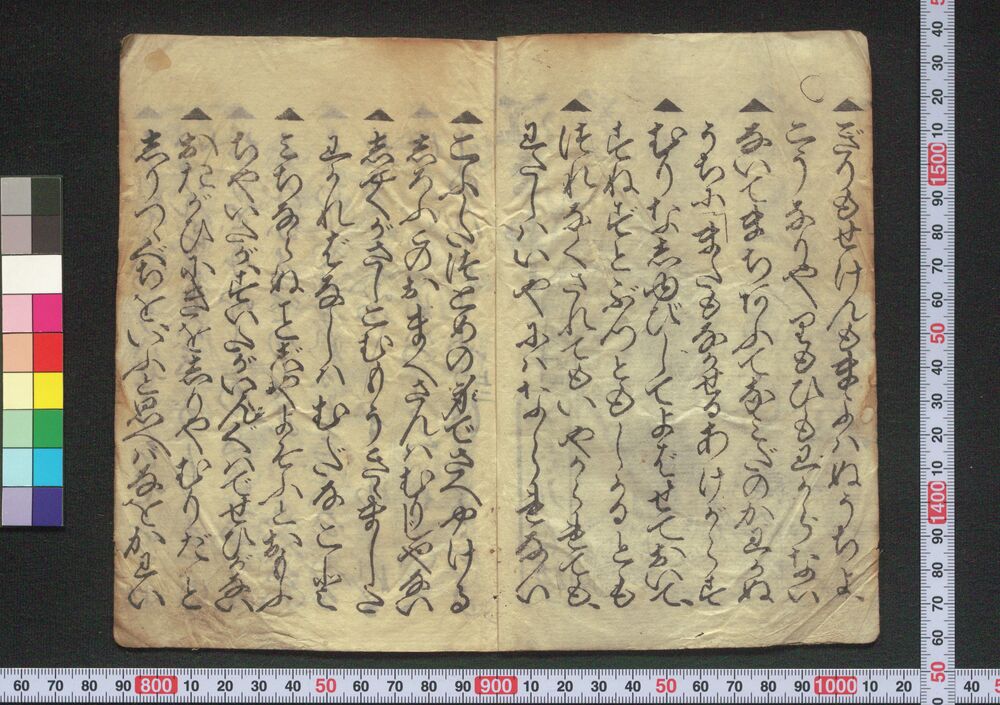 ぎりもせけんもまよハぬうちよ、
こうなりやりもひもわからない
ないてまちあふてなミだのかわかぬ
うちにまたもなかせるあけがらす
むりなしゆびしてよばせておいて、
すねずとぶつともしかるとも
ほれなくされてもいやがられても、
わたしハいやにハなられない
こふしたつとめの身でさへやける
しろふとのおまへさんハむりじやない
しやくがさしこむもうきました
わかればなしハむだなこと
ミちならぬことじやよそふとおもふ
ちやいたがすいたがいんぐハでぜひがない
おたがひにきをしりやむりだと
しりつゝぐちをいふと思へバなをかわい